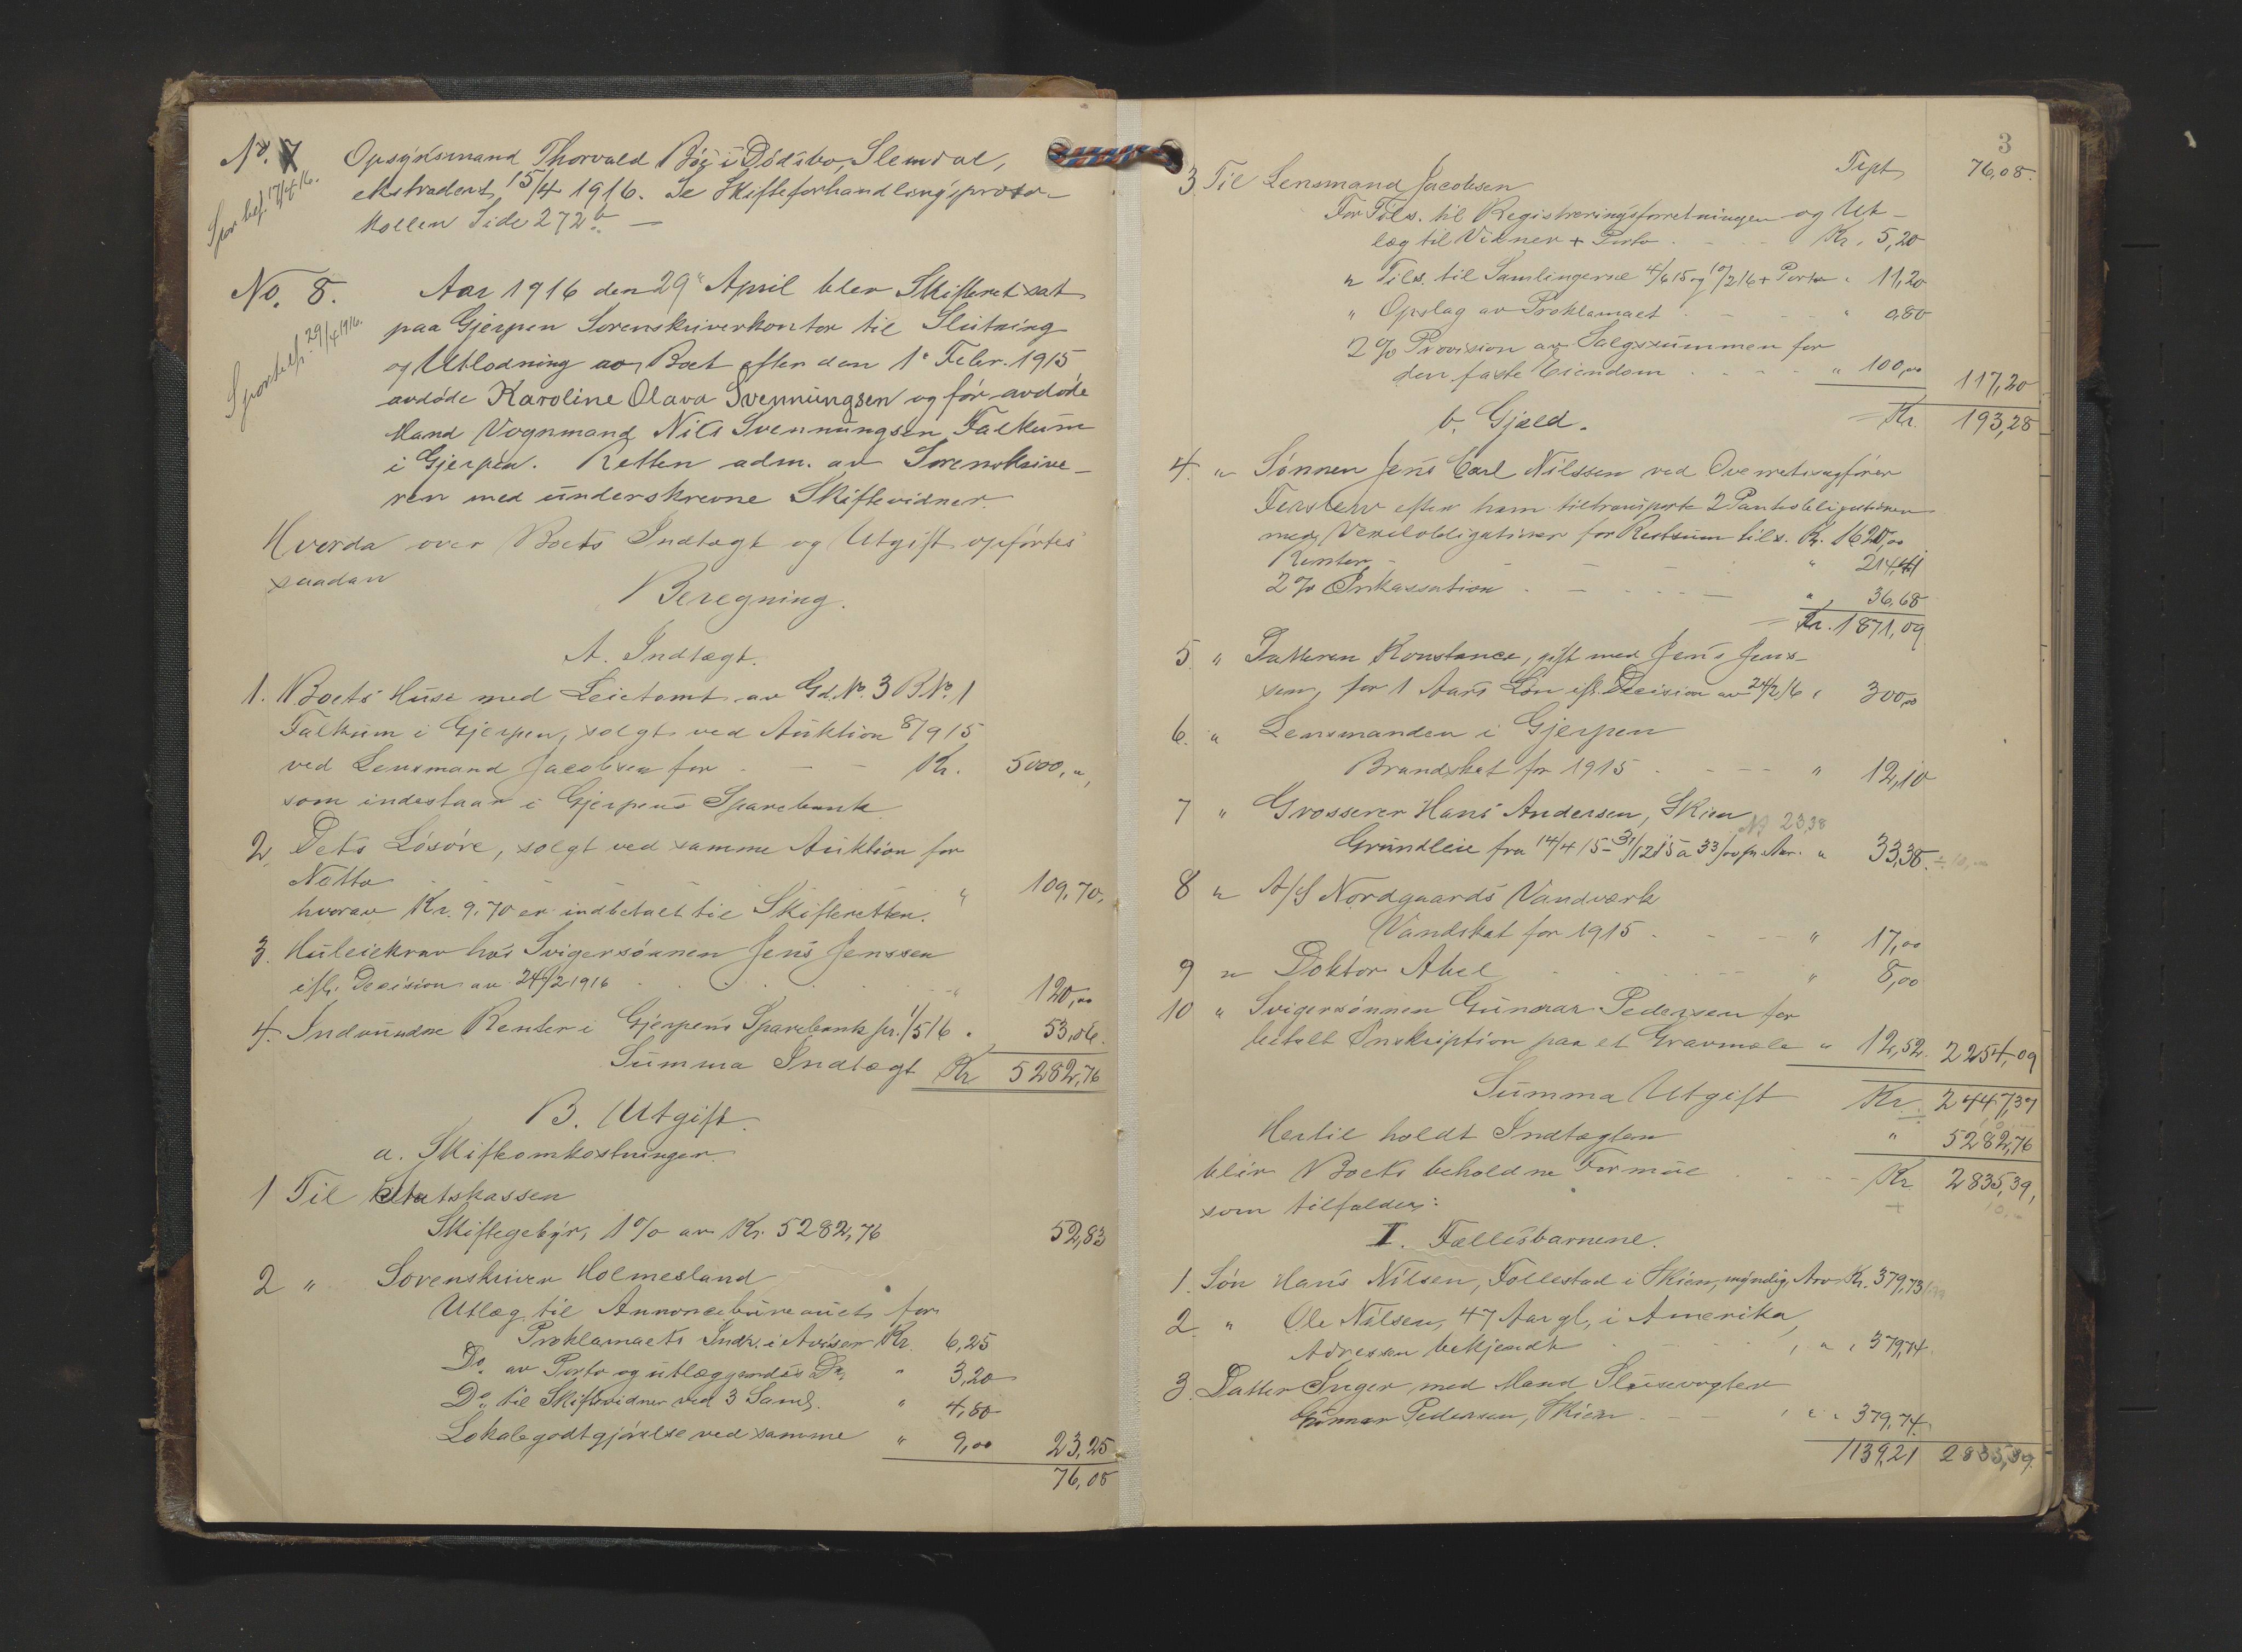 No. 7 Opsynsmand Thorvald Bøe's Dødsbo, Slemdal,
ekstradert 15/4 1916. Se Skifteforhandlingsproto-
kollen Side 272 b. —
Sportel bef. 17/4 16.
No. 8. Aar 1916 den 29" April blev Skifteret sat
paa Gjerpen Sorenskriverkontor til Slutning
Sportelbef. 29/4 1916.
og Utlodning av Boet efter den 1' Febr. 1915
avdøde Karoline Olava Svennungsen og før avdøde
Mand Vognmand Nils Svennungsen Falkum
i Gjerpen. Retten adm. av Sorenskrive-
ren med underskrevne Skiftevidner.
Hvorda over Boets Indtægt og Utgift opførtes
saadan
Beregning.
A. Indtægt.
1. Boets Huse med Leietomt av Gd. No. 3 B.No. 1
Falkum i Gjerpen, solgt ved Auktion 8/9 15
ved Lensmand Jacobsen for - - - Kr. 5000,",
som indestaar i Gjerpens Sparebank
2. Dets Løsøre, solgt ved samme Auktion for
Netto " 109,70,
hvorav Kr. 9,70 er indbetalt til Skifteretten.
3. Husleiekrav hos Svigersønnen Jens Jenssen
ifl. Decision av 24/2 1916 " 120,00
4. Indvundne Renter i Gjerpens Sparebank pr. 1/5 16 " 53,06.
Summa Indtægt Kr 5282,76
B. Utgift.
a. Skifteomkostninger.
1 Til Statskassen
Skiftegebyr, 1% av Kr. 5282,76 52,83
2 " Sorenskriver Holmesland
Utlæg til Annoncebureauet for
Proklamaets Indr. i Aviser Kr. 6,25
Do. av Porto og utlæggendes Do. " 3,20
Do. til Skiftevidner ved 3 Saml. " 4,80
Lokalegodtgjørelse ved samme " 9,00 23,25
76,08
3
Tspt 76,08.
3 Til Lensmand Jacobsen
For Tils. til Registreringsforretningen og Ut-
læg til Vidner + Porto - - - Kr. 5,20
" Tils. til Samlingerne 4/6 15 og 10/2 16 + Porto " 11,20
" Opslag av Proklamaet - - - " 0,80
2% Provision av Salgssummen for
den faste Eiendom - - - " 100,00 117,20
Kr. 193,28
b. Gjæld.
4. " Sønnen Jens Carl Nilssen ved Overretssagfører
Ferslew efter ham tiltransporte 2 Pantobligationer
med Vexelobligationer for Restsum tils. Kr. 1620,00
Renter - - - " 214,41
2% Inkassation - - - " 36,68
= Kr. 1871,09
5 " Datteren Konstance, gift med Jens Jens-
sen, for 1 Aars Løn ifl. Decision av 24/2 16 " 300,00
6. " Lensmanden i Gjerpen
Brandskat for 1915 - - - " 12,10
7 " Grosserer Hans Andersen, Skien
23,38
Grundleie fra 14/4 15 - 31/12 15 a 33/00 pr. Aar. " 33,38. ÷ 10,-
8 " A/S Nordgaards Vandværk
Vandskat for 1915 - - - " 17,00
9 " Doktor Abel - - - " 8,00
10 " Svigersønnen Gunnar Pedersen for
betalt Inskription paa et Gravmæle " 12,52 2254,09
Summa Utgift Kr. 2447,37
÷ 10,-
Hertil holdt Indtægten " 5282,76
blir Boets beholdne Formue - - - Kr 2835,39,
+ 10,-
som tilfalder:
I. Fællesbarnene.
1. Søn Hans Nilsen, Follestad i Skien, myndig, Arv Kr. 379,73
2. " Ole Nilsen, 47 Aar gl, i Amerika,
Adressen bekjendt " " 379,74
3. Datter Inger med Mand Slusevogter
Gunnar Pedersen, Skien - - " " 379,74
1139,21 2835,39.